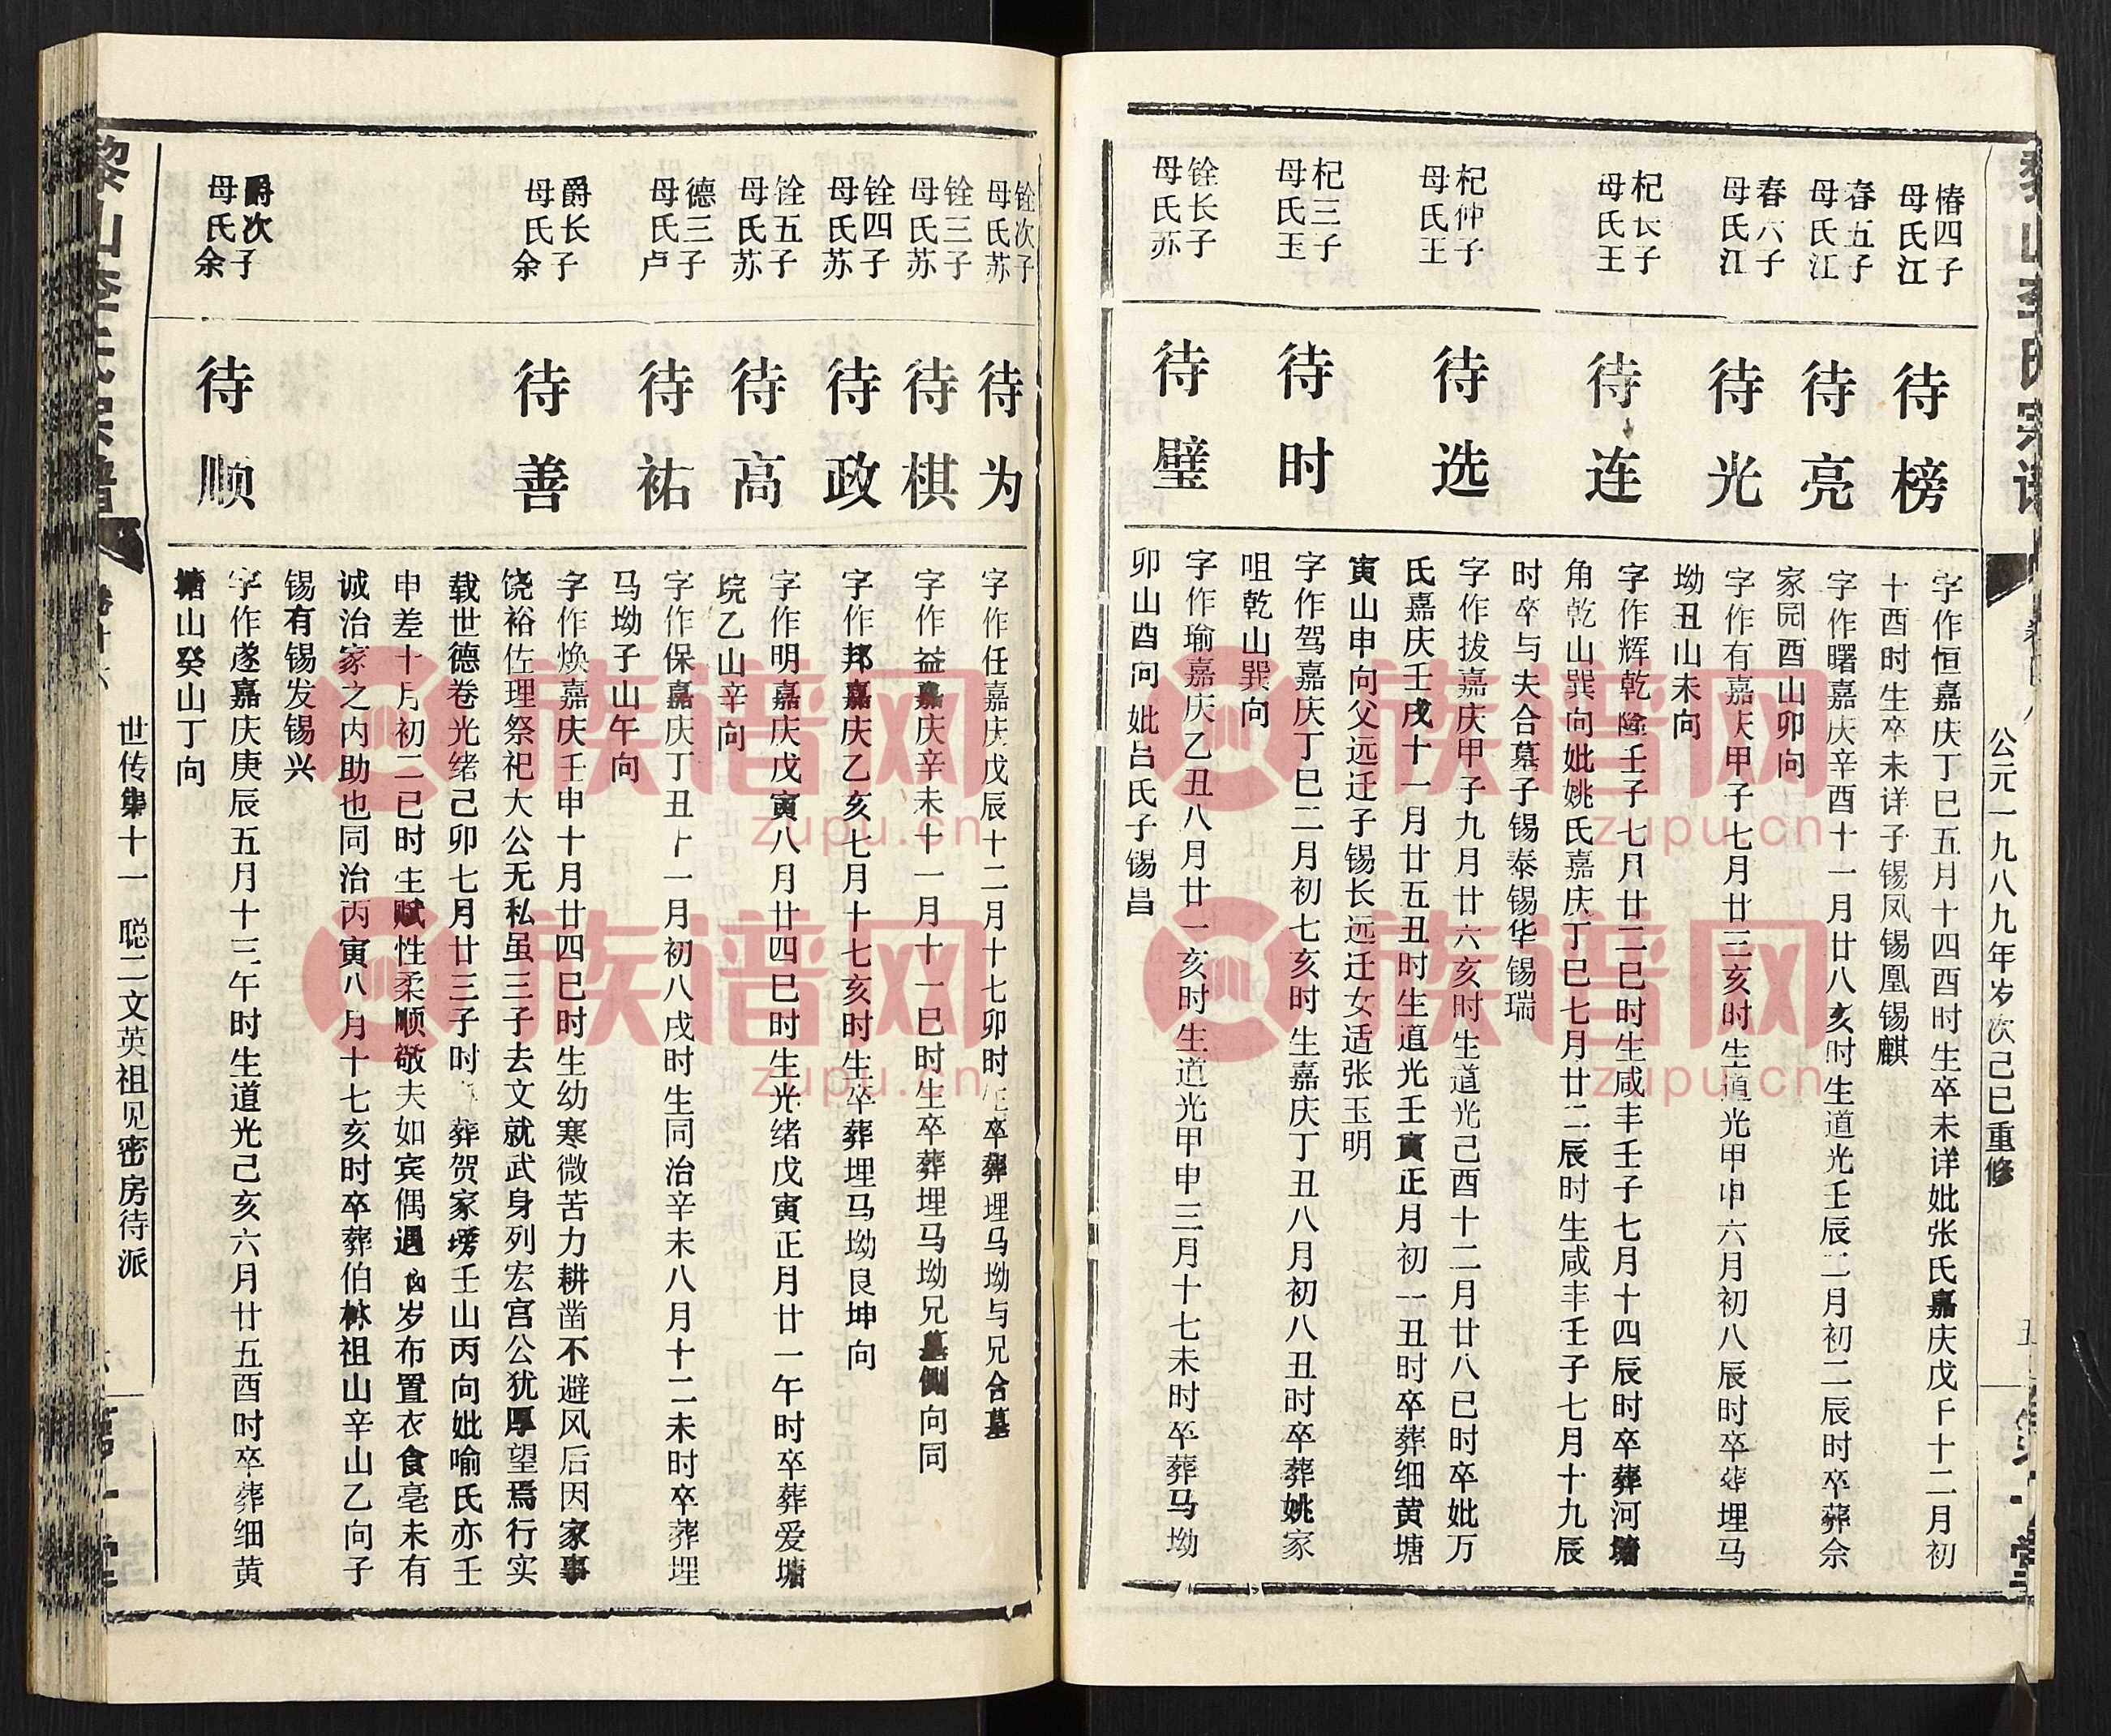 公元一九八九年岁次己巳重修
椿四子
母氏江
待榜
字作恒嘉庆丁巳五月十四酉时生卒未详妣张氏嘉庆戊午十二月初
十酉时生卒未详子锡凤锡凰锡麒
春五子
母氏江
待亮
字作曙嘉庆辛酉十一月廿八亥时生道光壬辰二月初二辰时卒葬佘
家园酉山卯向
春六子
母氏江
待光
字作有嘉庆甲子七月廿三亥时生道光甲申六月初八辰时卒葬埋马
坳丑山未向
杞长子
母氏王
待连
字作辉乾隆壬子七月廿二巳时生咸丰壬子七月十四辰时卒葬河塘
角乾山巽向妣姚氏嘉庆丁巳七月廿二辰时生咸丰壬子七月十九辰
时卒与夫合墓子锡泰锡华锡瑞
杞仲子
母氏王
待选
字作拔嘉庆甲子九月廿六亥时生道光己酉十二月廿八巳时卒妣万
氏嘉庆壬戌十一月廿五丑时生道光壬寅正月初一丑时卒葬细黄塘
寅山申向父远迁子锡长远迁女适张玉明
杞三子
母氏王
待时
字作驾嘉庆丁巳二月初七亥时生嘉庆丁丑八月初八丑时卒葬姚家
咀乾山巽向
铨长子
母氏苏
待璧
字作瑜嘉庆乙丑八月廿一亥时生道光甲申三月十七未时卒葬马坳
卯山酉向妣吕氏子锡昌
铨次子
母氏苏
待为
字作任嘉庆戊辰十二月十七卯时生卒葬埋马坳与兄合墓
铨三子
母氏苏
待棋
字作益嘉庆辛未十一月十一巳时生卒葬埋马坳兄墓侧向同
铨四子
母氏苏
待政
字作邦嘉庆乙亥七月十七亥时生卒葬埋马坳艮坤向
铨五子
母氏苏
待高
字作明嘉庆戊寅八月廿四巳时生光绪戊寅正月廿一午时卒葬爱塘
垸乙山辛向
德三子
母氏卢
待祐
字作保嘉庆丁丑十一月初八戌时生同治辛未八月十二未时卒葬埋
马坳子山午向
爵长子
母氏余
待善
字作焕嘉庆壬申十月廿四巳时生幼寒微苦力耕凿不避风后因家事
饶裕佐理祭祀大公无私虽三子去文就武身列宏宫公犹厚望焉行实
载世德卷光绪己卯七月廿三子时葬贺家塝壬山丙向妣喻氏亦壬
申差十月初二巳时生赋性柔顺敬夫如宾偶遇凶岁布置衣食毫未有
诚治家之内助也同治丙寅八月十七亥时卒葬伯林祖山辛山乙向子
锡有锡发锡兴
爵次子
母氏余
待顺
字作遂嘉庆庚辰五月十三午时生道光己亥六月廿五酉时卒葬细黄
塘山癸山丁向
黎山李氏宗谱
卷十六
世传集十一 聪二文英祖见密房待派
族谱网
zupu.cn
族谱网
zupu.cn
族谱网
zupu.cn
族谱网
zupu.cn